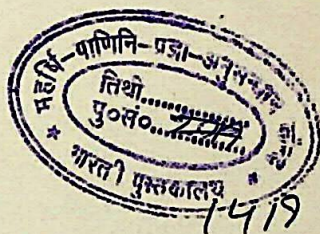 महर्षि-पाणिनि-प्रज्ञा-अनुसन्धान
तिथौ...............
पु०सं०...............
* भारती पुस्तकालय *
1419